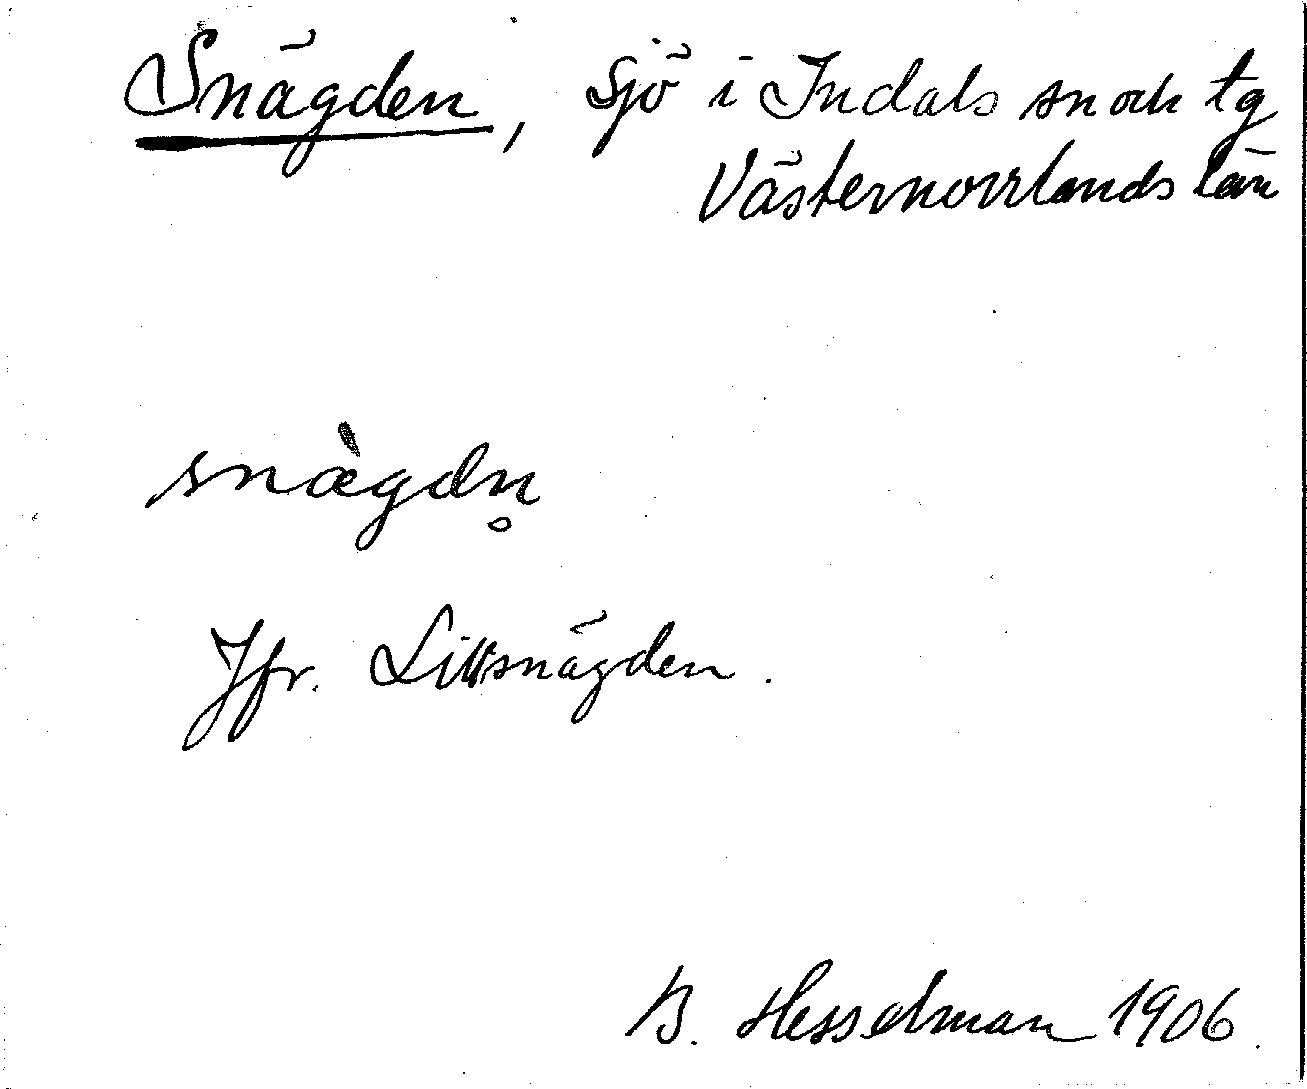 Snägden, sjö i Indals sn och tg
Västernorrlands län
snæ̀gdn̥
Jfr. Lillsnägden.
B. Hesselman 1906.